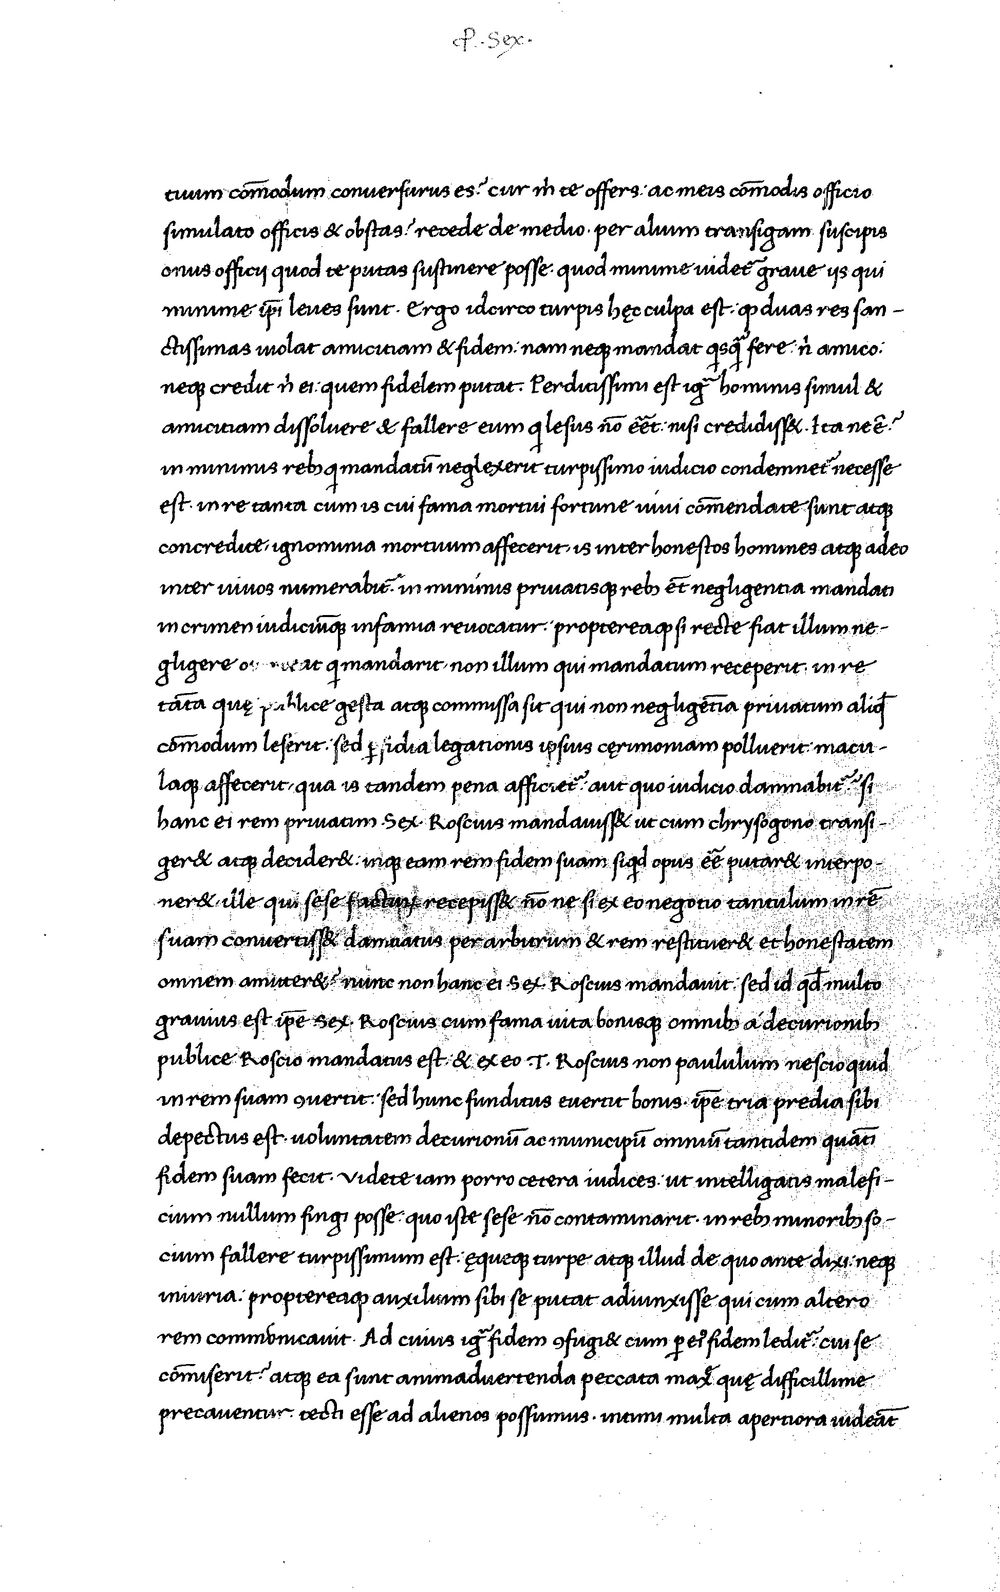 ꝓ. Sex.
tuum com̄odum conuersurus es? cur m̄ te offers. ac meis com̄odis officio
simulato officis & obstas? recede de medio. per alium transigam suscipis
onus officij quod te putas sustinere posse. quod minime uidet᷑ graue ijs qui
minime ip̄i leues sunt. Ergo idcirco turpis hęc culpa est: ꝙ duas res san-
ctissimas uiolat amicitiam & fidem: nam neqꝫ mandat qisq̄ fere. n̄ amico:
neqꝫ credit n̄ ei: quem fidelem putat. Perditissimi est ig̃ hominis simul &
amicitiam dissoluere & fallere eum qi lesus nō eēt. nisi credidiss&. Ita ne ē?
in minimis rebꝫ qi mandatū neglexerit turpissimo iudicio condemnet᷑ necesse
est. in re tanta cum is cui fama mortui fortune uiui com̄endate sunt atqꝫ
concredite, ignominia mortuum affecerit, is inter honestos homines atqꝫ adeo
inter uiuos numerabit᷑. in minimis priuatisqꝫ rebꝫ ēt negligentia mandati
in crimen iudiciūqꝫ infamia reuocatur. propterea ꝙ si recte fiat illum ne-
gligere qi mandarit. non illum qui mandatum receperit. in re
tāta quę publice gesta atqꝫ commissa sit qui non negligētia priuatum aliqd̄
com̄odum leserit. sed ꝑfidia legationis ipsius cęrimoniam polluerit. macu-
laqꝫ affecerit, qua is tandem pena afficiet᷑. aut quo iudicio damnabit᷑? si
hanc ei rem priuatim Sex. Roscius mandauiss& ut cum chrysogono transi-
ger& atqꝫ decider&. inqꝫ eam rem fidem suam siqd̄ opus eē putar& interpo-
ner&. ille qui sese facturū recepiss& nō ne si ex eo negotio tantulum in rē
suam conuertiss& damnatus per arbitrum & rem restituer& et honestatem
omnem amitter&? nunc non hanc ei Sex. Roscius mandauit. sed id qd̄ multo
grauius est ip̄e Sex. Roscius cum fama uita bonisqꝫ omnibꝫ a decurionibꝫ
publice Roscio mandatus est. & ex eo .T. Roscius non paululum nescio quid
in rem suam ꝯuertit. sed hunc funditus euertit bonis. ip̄e tria predia sibi
depectus est. uoluntatem decurionū ac municipū omniū tantidem quāti
fidem suam fecit. Videte iam porro cetera iudices. ut intelligatis malefi-
cium nullum fingi posse. quo iste sese nō contaminarit. in rebꝫ minoribꝫ so-
cium fallere turpissimum est. ęqueqꝫ turpe atqꝫ illud de quo ante dixi. neqꝫ
iniuria. propterea ꝙ auxilium sibi se putat adiunxisse qui cum altero
rem communicauit. Ad cuius ig̃ fidem ꝯfugi& cum ꝑ ei᷒ fidem ledit᷑. cui se
com̄iserit? atqꝫ ea sunt animaduertenda peccata max̄ quę difficillime
precauentur. tecti esse ad alienos possumus. intimi multa apertiora uideāt